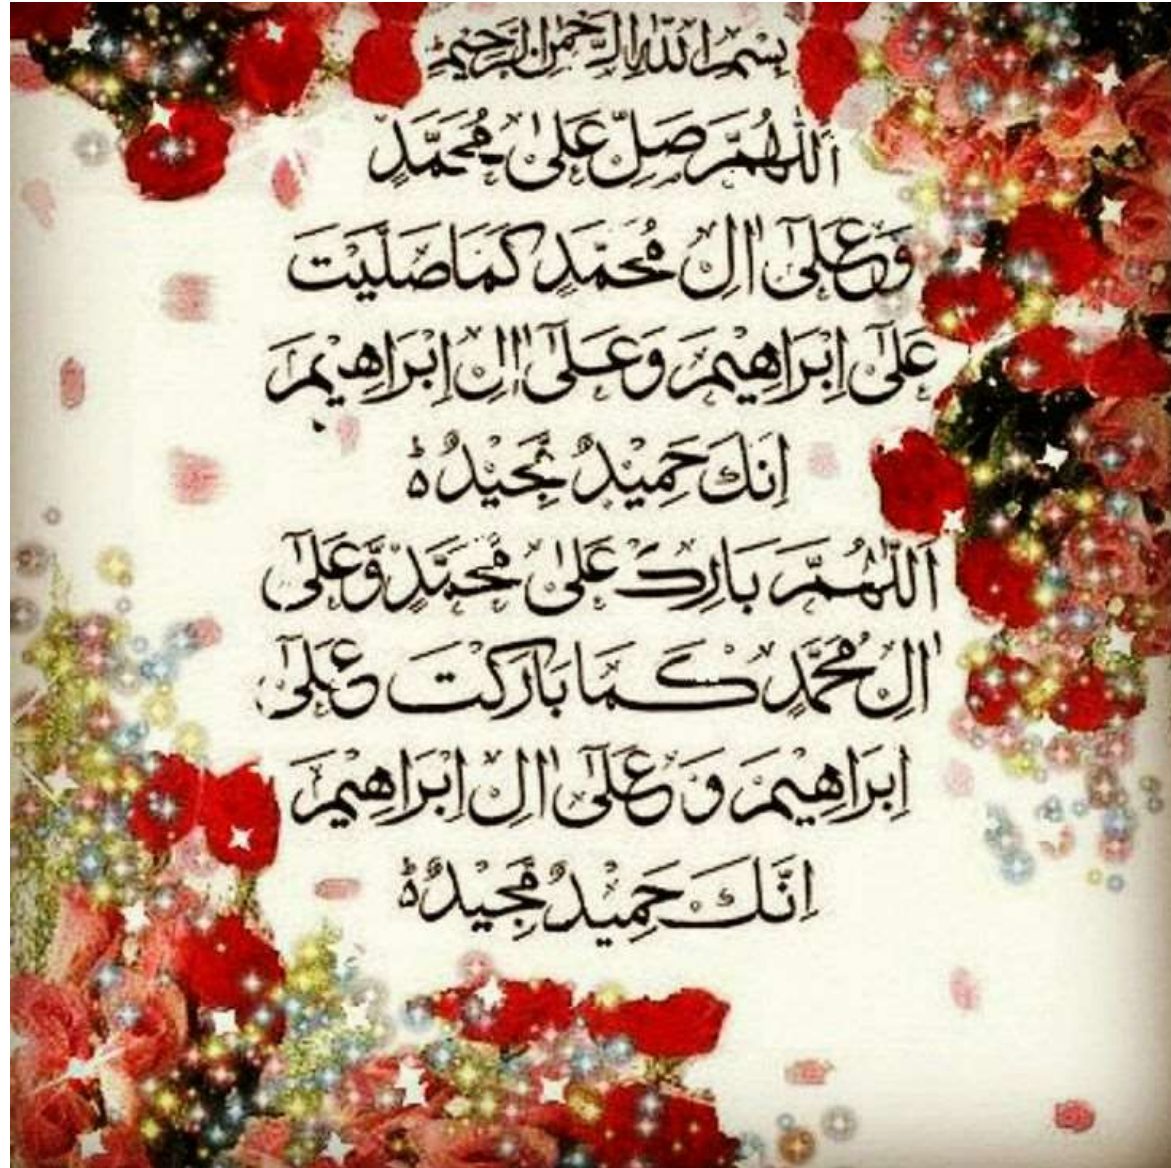 بِسْمِ اللّٰهِ الرَّحْمٰنِ الرَّحِيْمِ
اَللّٰهُمَّ صَلِّ عَلٰى مُحَمَّدٍ
وَعَلٰٓى اٰلِ مُحَمَّدٍ كَمَا صَلَّيْتَ
عَلٰٓى اِبْرَاهِيْمَ وَعَلٰٓى اٰلِ اِبْرَاهِيْمَ
اِنَكَ حَمِيْدٌ مَّجِيْدٌ ؕ
اَللّٰهُمَّ بَارِكْ عَلٰى مُحَمَّدٍ وَّعَلٰٓى
اٰلِ مُحَمَّدٍ كَمَا بَارَكْتَ عَلٰٓى
اِبْرَاهِيْمَ وَعَلٰٓى اٰلِ اِبْرَاهِيْمَ
اِنَّكَ حَمِيْدٌ مَّجِيْدٌ ؕ